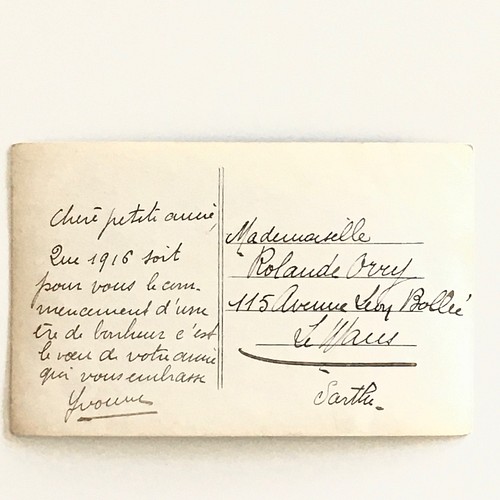 Chère petite amie,
Que 1916 soit
pour vous le com-
mencement d'une
ère de bonheur c'est
le vœu de votre amie
qui vous embrasse
Yvonne
Mademoiselle
Rolande Ovry
115 Avenue Léon Bollée
Le Mans
Sarthe